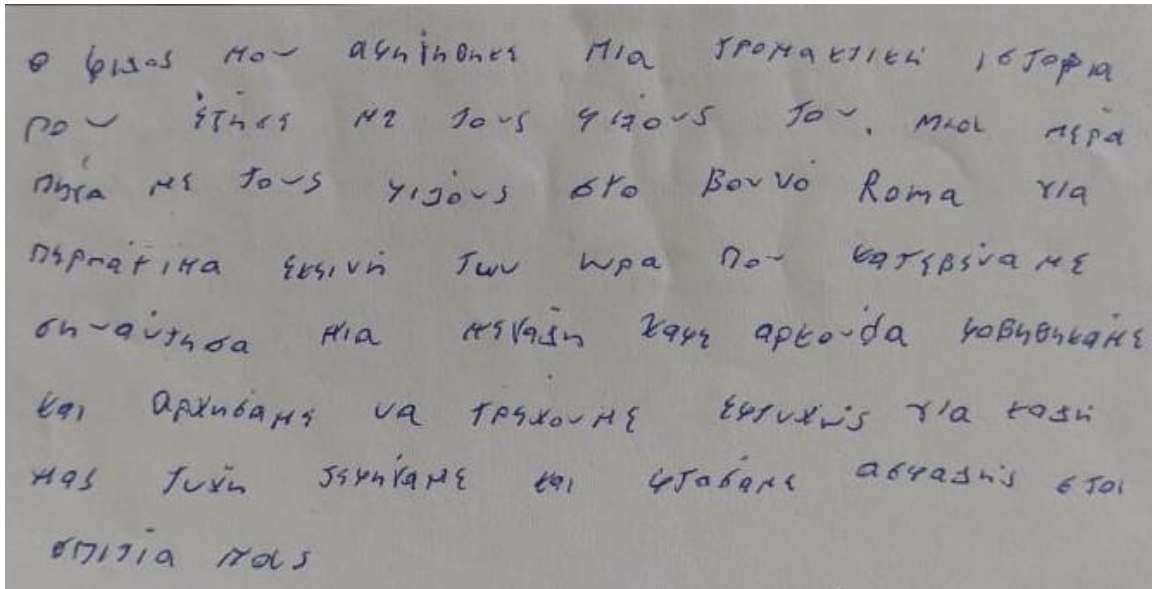 ο φιλος μου αφηγηθηκε μια τρομακτικη ιστορια
που έζησε με τους φιλους του. μια μερα
πηγα με τους φιλόυς στο βουνό Roma για
περπατιμα εκεινη των ωρα που κατεβεναμε
συναντησα μια μεγαλη καφε αρκουδα φοβηθηκαμε
και αρχησαμε να τρεχουμε εφτυχως για καλη
μας τυχη ξεφηγαμε και φτασαμε ασφαλης στα
σπιτια μας